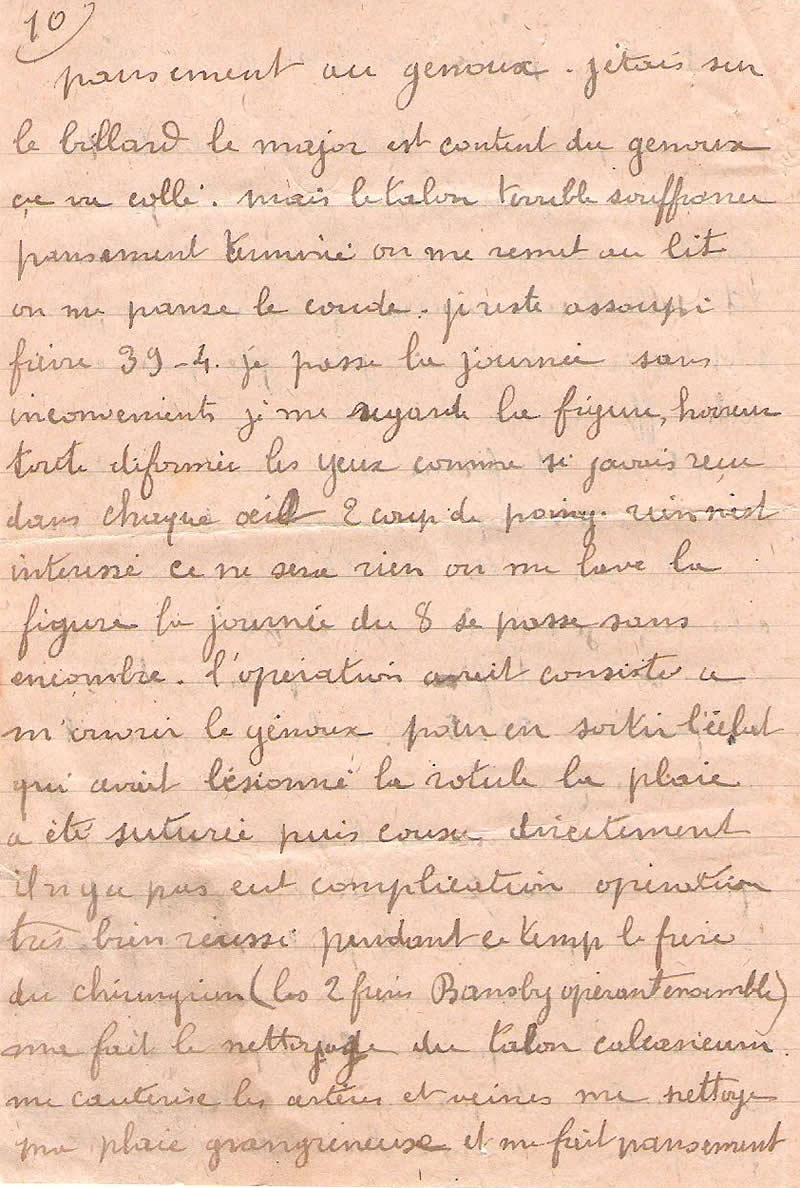 10
pansement au genoux. jetais sur
le billard le major est content du genoux
ça va collé. mais le talon terrible souffrance
pansement terminé on me remet au lit
on me panse le coude. je reste assoupi
fièvre 39-4. je passe la journée sans
inconvenients je me regarde la figure, horreur
toute déformée les yeux comme si javais recu
dans chaque œil 2 coup de poing. rien nest
interessé ce ne sera rien on me lave la
figure la journée du 8 se passe sans
encombre. l'opération avait consiste a
m'ouvrir le génoux pour en sortir l'éclat
qui avait lésionné la rotule la plaie
a été suturée puis cousu directement
il ny a pas eut complication opération
très bien réussi pendant ce temp le frere
du chirurgien (les 2 freres Bansby opérant ensemble)
me fait le nettoyage du talon calcaneum.
me cauterise les artères et veines me nettoye
ma plaie grangreneuse et me fait pansement